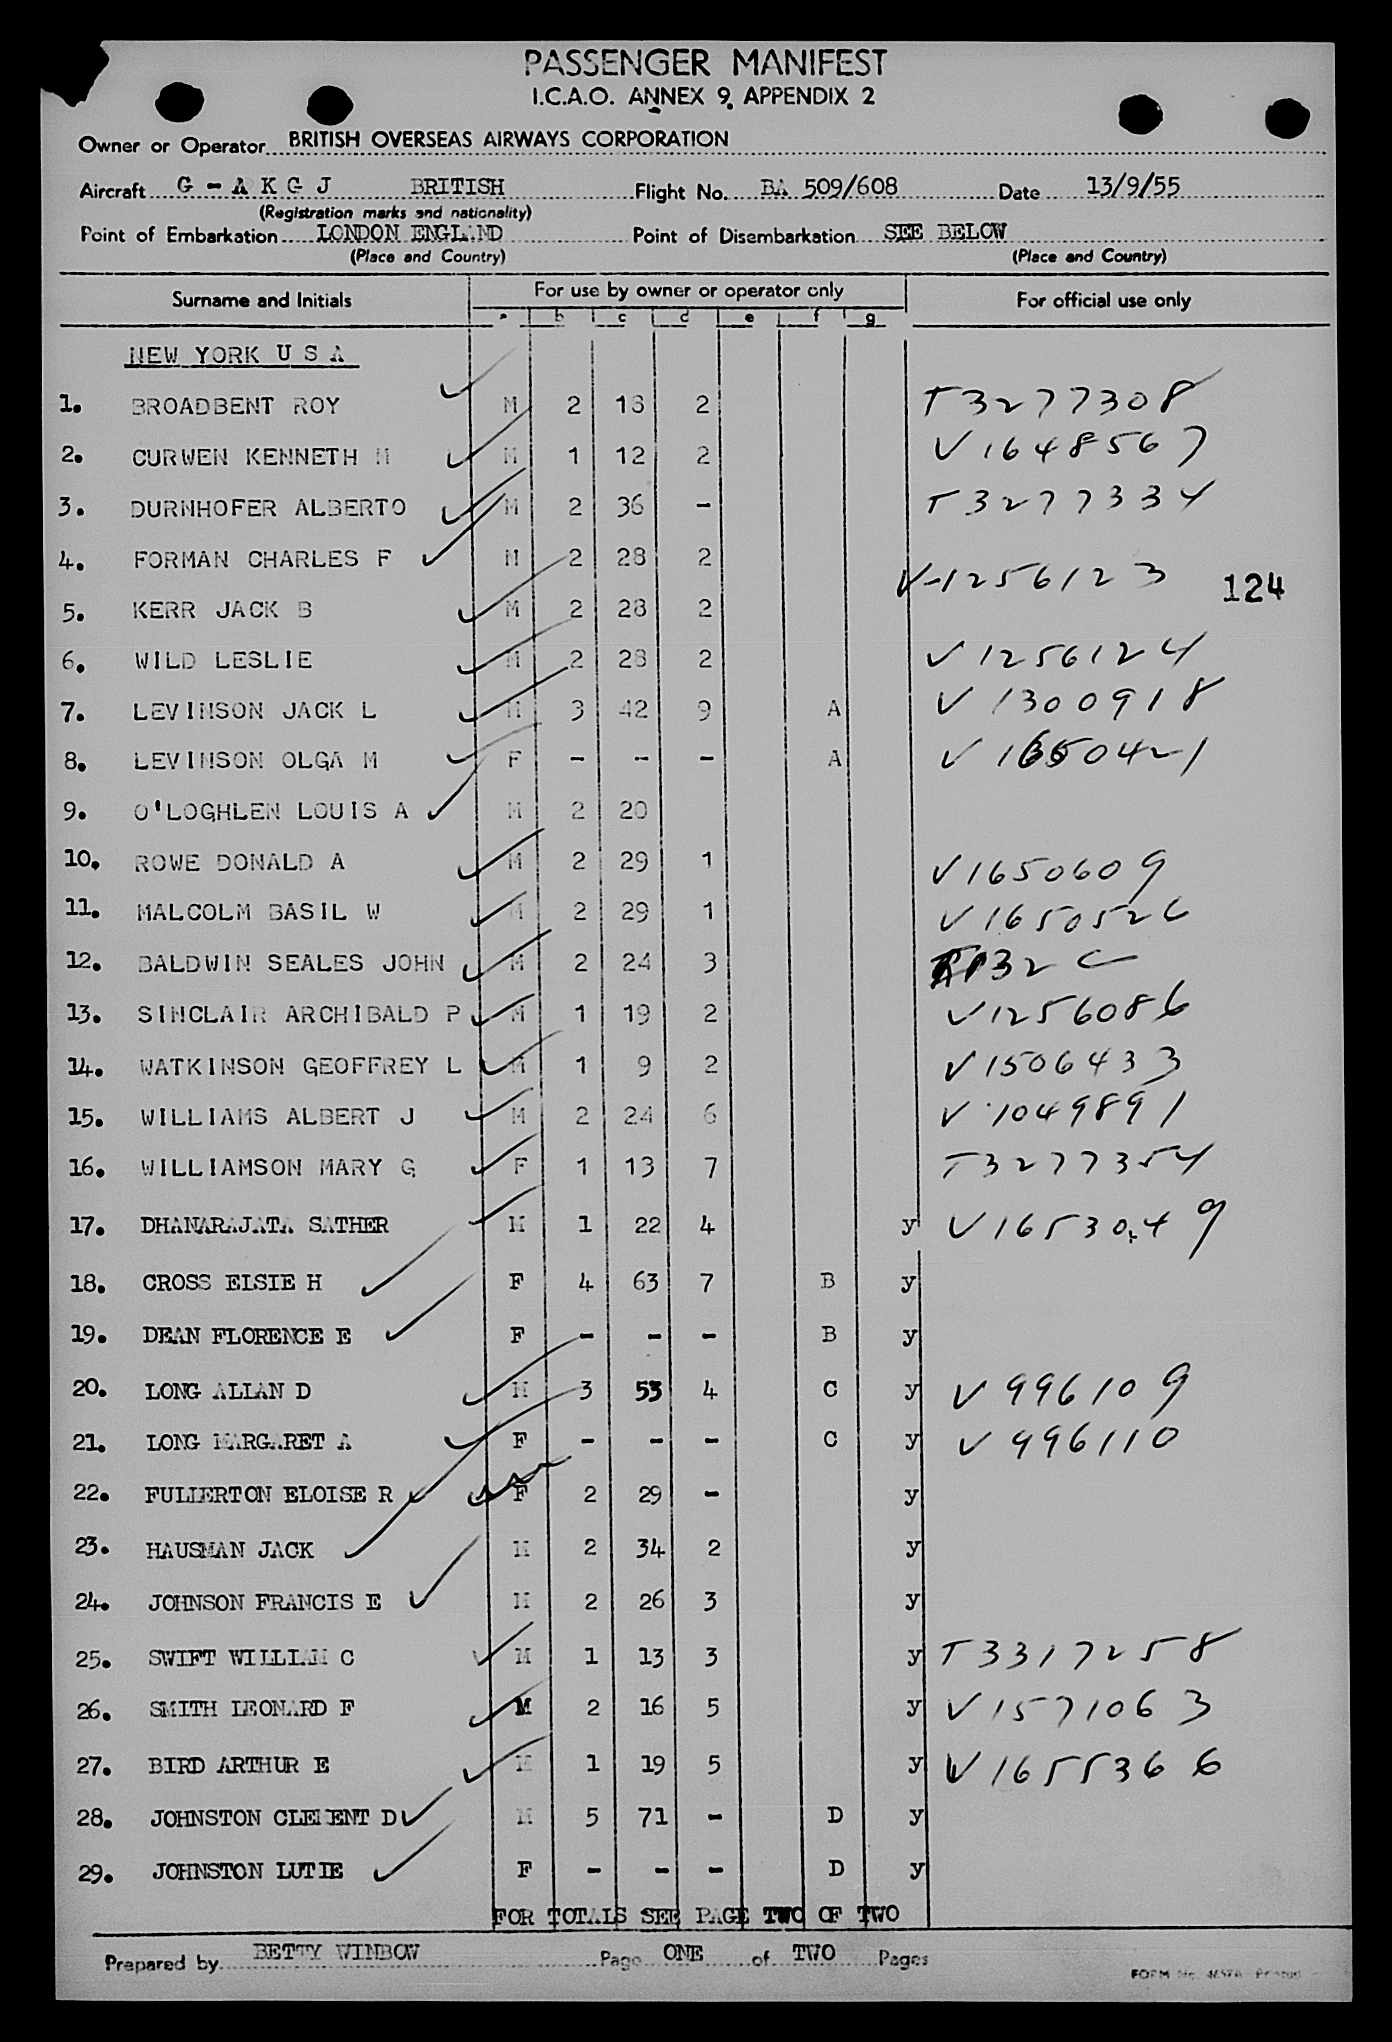 PASSENGER MANIFEST
I.C.A.O. ANNEX 9, APPENDIX 2
Owner or Operator BRITISH OVERSEAS AIRWAYS CORPORATION
Aircraft G - A K G J BRITISH Flight No. BA 509/608 Date 13/9/55
(Registration marks and nationality)
Point of Embarkation LONDON ENGLAND Point of Disembarkation SEE BELOW
(Place and Country) (Place and Country)
Surname and Initials For use by owner or operator only For official use only
a b c d e f g
NEW YORK U S A
1. BROADBENT ROY M 2 18 2 T3277308
2. CURWEN KENNETH M M 1 12 2 V1648567
3. DURNHOFER ALBERTO M 2 36 - T3277334
4. FORMAN CHARLES F M 2 28 2
V-1256123 124
5. KERR JACK B M 2 28 2
6. WILD LESLIE M 2 28 2 V1256124
7. LEVINSON JACK L M 3 42 9 A V1300918
8. LEVINSON OLGA M F - - - A V
9. O'LOGHLEN LOUIS A M 2 20
10. ROWE DONALD A M 2 29 1 V1650609
11. MALCOLM BASIL W M 2 29 1 V1650526
12. BALDWIN SEALES JOHN M 2 24 3
13. SINCLAIR ARCHIBALD P M 1 19 2 V1256086
14. WATKINSON GEOFFREY L M 1 9 2 V1506433
15. WILLIAMS ALBERT J M 2 24 6 V1049891
16. WILLIAMSON MARY G F 1 13 7 T3277354
17. DHANARAJATA SATHER M 1 22 4 y V1653049
18. CROSS ELSIE H F 4 63 7 B y
19. DEAN FLORENCE E F - - - B y
20. LONG ALLAN D M 3 53 4 C y V996109
21. LONG MARGARET A F - - - C y V996110
22. FULLERTON ELOISE R F 2 29 - y
23. HAUSMAN JACK M 2 34 2 y
24. JOHNSON FRANCIS E M 2 26 3 y
25. SWIFT WILLIAM C M 1 13 3 y T3317258
26. SMITH LEONARD F M 2 16 5 y V1571063
27. BIRD ARTHUR E M 1 19 5 y V1655366
28. JOHNSTON CLEMENT D M 5 71 - D y
29. JOHNSTON LUTIE F - - - D y
FOR TOTALS SEE PAGE TWO OF TWO
Prepared by BETTY WINBOW Page ONE of TWO Pages
FORM No.